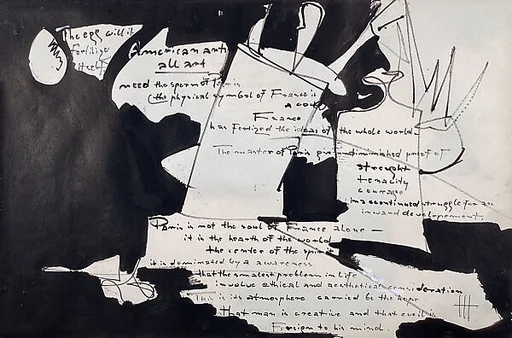 The egg will it
fertilize
itself
American art
all art
need the sperm of Paris
(the physical symbol of France is
a cock
France
has ferilized the ideas of the whole world
The master of Paris give undiminished proof of
strenght
tenacity
courage
in a continued struggle for an
inward development.
Paris is not the soul of France alone —
it is the hearth of the world
the center of the spirit
it is dominated by a awareness
that the smalest problem in life
involve ethical and aesthetical consideration
This is its atmosphere carried by the hope
that man is creative and that evil is
Foreign to his mind.